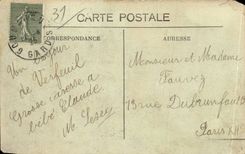 31
CARTE POSTALE
CORRESPONDANCE
ADRESSE
GARDE
Un bonjour
de Verfeuil
Grosse caresse a
bébé Claude
M.
Monsieur et Madame
Fauvez
13 rue
Paris